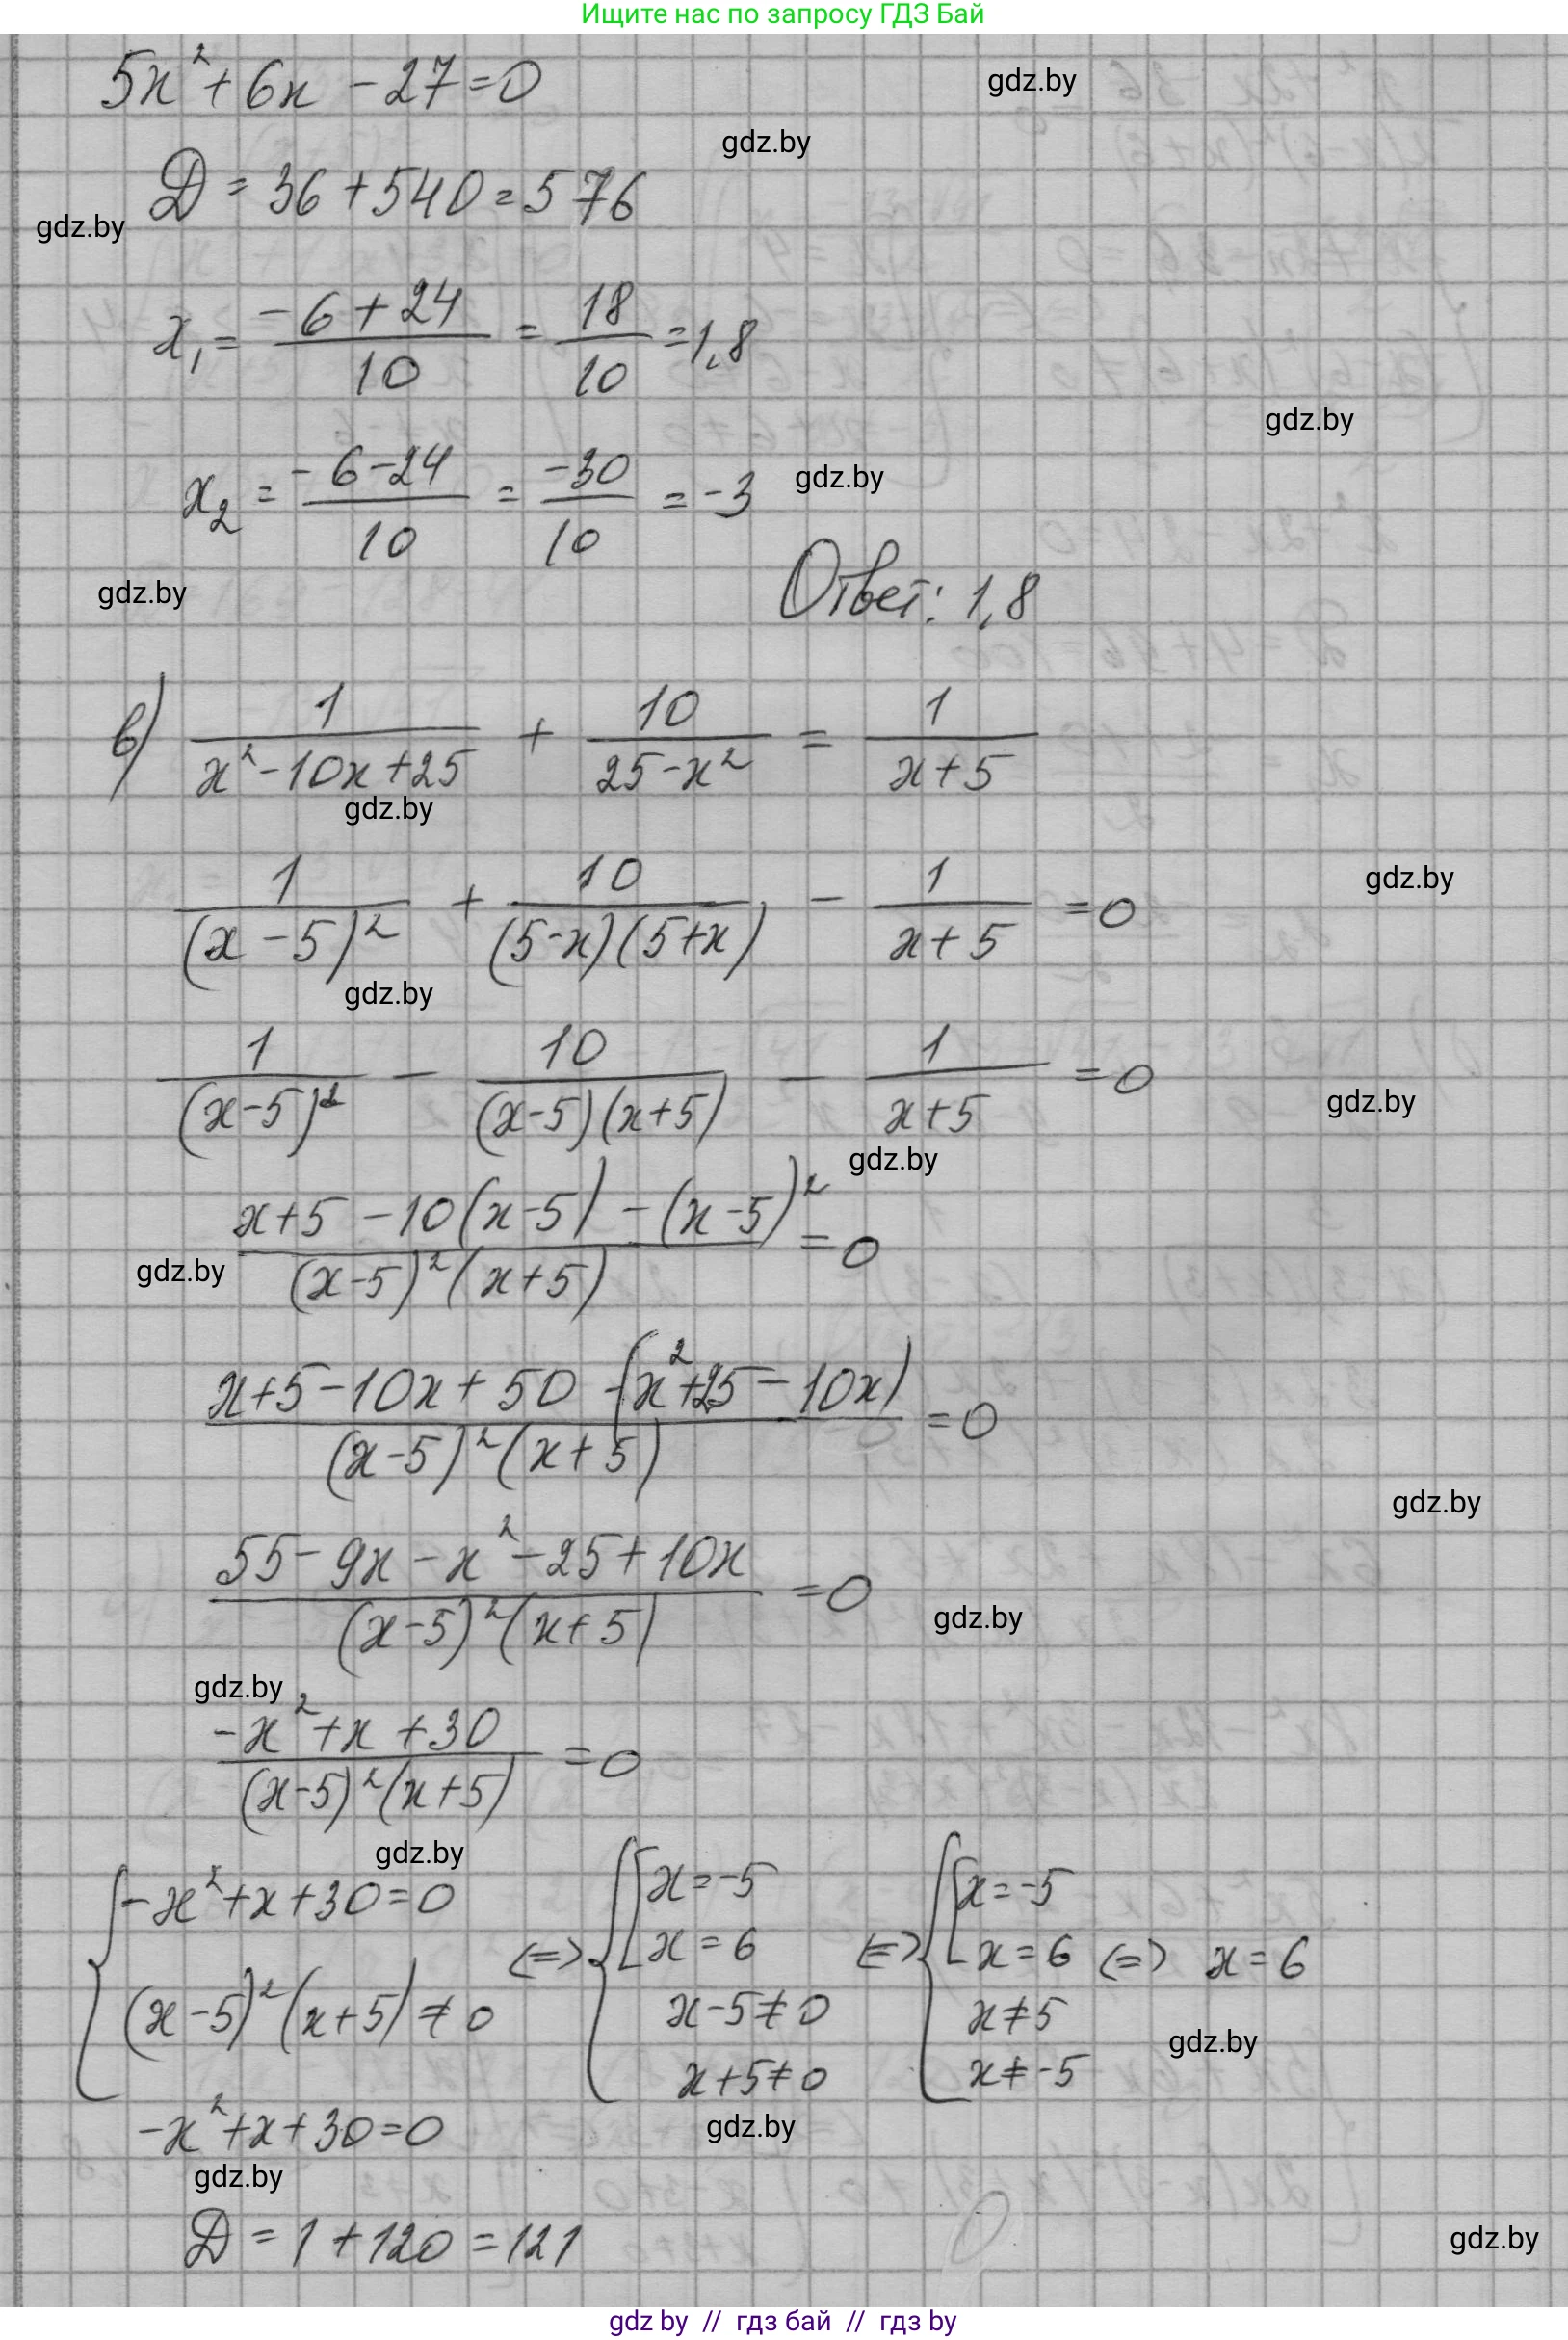 Ищите нас по запросу ГДЗ Бай
5x² + 6x - 27 = 0
gdz.by
gdz.by
Д = 36 + 540 = 576
gdz.by
x₁ = (-6 + 24)/10 = 18/10 = 1,8
gdz.by
x₂ = (-6 - 24)/10 = -30/10 = -3
gdz.by
gdz.by
Ответ: 1,8
в) 1/(x² - 10x + 25) + 10/(25 - x²) = 1/(x + 5)
gdz.by
1/(x - 5)² + 10/((5 - x)(5 + x)) - 1/(x + 5) = 0
gdz.by
gdz.by
1/(x - 5)² - 10/((x - 5)(x + 5)) - 1/(x + 5) = 0
gdz.by
gdz.by
(x + 5 - 10(x - 5) - (x - 5)²)/((x - 5)²(x + 5)) = 0
gdz.by
(x + 5 - 10x + 50 - (x² + 25 - 10x))/((x - 5)²(x + 5)) = 0
gdz.by
(55 - 9x - x² - 25 + 10x)/((x - 5)²(x + 5)) = 0
gdz.by
gdz.by
(-x² + x + 30)/((x - 5)²(x + 5)) = 0
gdz.by
{ -x² + x + 30 = 0 (=) { [ x = -5 (=) { [ x = -5
x = 6 x = 6 (=) x = 6
(x - 5)²(x + 5) ≠ 0 x - 5 ≠ 0 x ≠ 5
gdz.by
x + 5 ≠ 0 x ≠ -5
-x² + x + 30 = 0
gdz.by
gdz.by
Д = 1 + 120 = 121
gdz.by
gdz by // гдз бай // гдз by